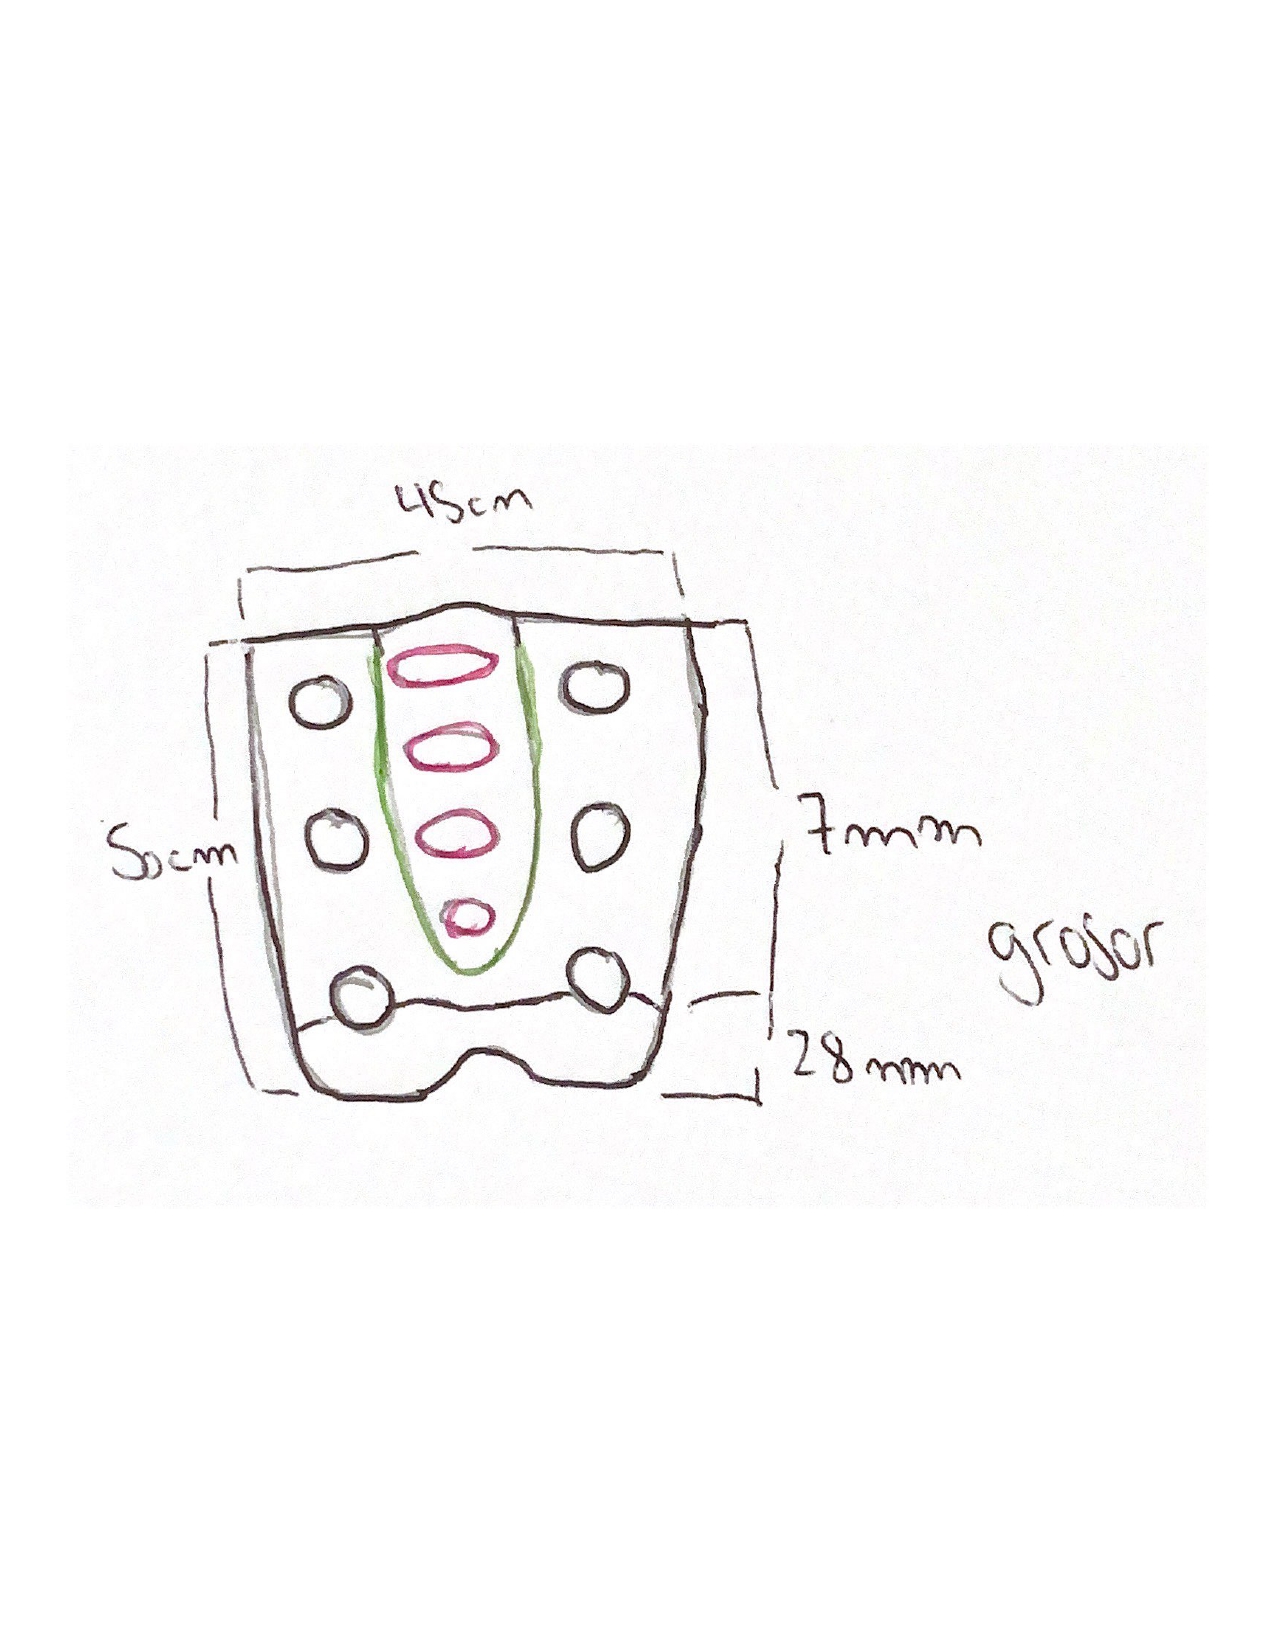 45cm
50cm
7mm
grosor
28mm